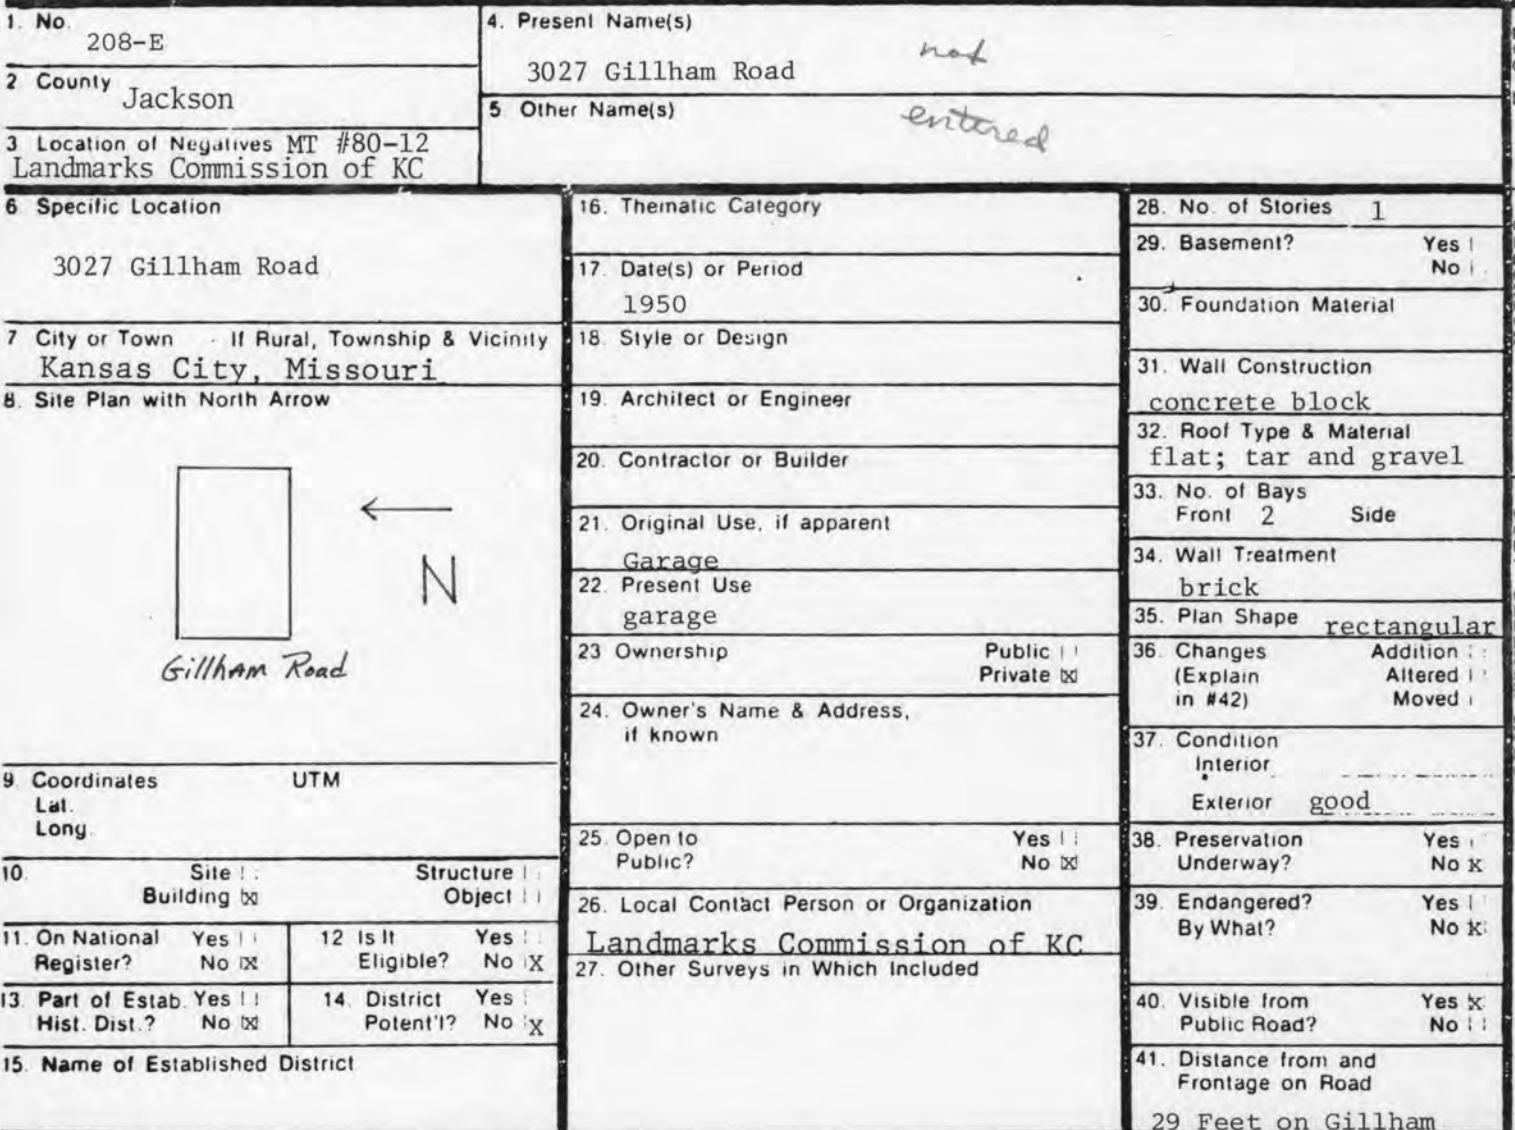 1. No.
208-E
2 County Jackson
3 Location of Negatives MT #80-12
Landmarks Commission of KC
4. Present Name(s)
3027 Gillham Road
not
5 Other Name(s)
entered
6 Specific Location
3027 Gillham Road
7 City or Town If Rural, Township & Vicinity
Kansas City, Missouri
8. Site Plan with North Arrow
N
Gillham Road
9. Coordinates UTM
Lat.
Long.
10. Site Structure
Building X Object
11. On National Yes
Register? No X
12 Is It Yes
Eligible? No X
13. Part of Estab. Yes
Hist. Dist.? No X
14. District Yes
Potent'l? No X
15. Name of Established District
16. Thematic Category
17. Date(s) or Period
1950
18. Style or Design
19. Architect or Engineer
20. Contractor or Builder
21. Original Use, if apparent
Garage
22. Present Use
garage
23 Ownership Public
Private X
24. Owner's Name & Address,
if known
25. Open to Yes
Public? No X
26. Local Contact Person or Organization
Landmarks Commission of KC
27. Other Surveys in Which Included
28. No. of Stories 1
29. Basement? Yes
No
30. Foundation Material
31. Wall Construction
concrete block
32. Roof Type & Material
flat; tar and gravel
33. No. of Bays
Front 2 Side
34. Wall Treatment
brick
35. Plan Shape rectangular
36. Changes Addition
(Explain Altered
in #42) Moved
37. Condition
Interior
Exterior good
38. Preservation Yes
Underway? No X
39. Endangered? Yes
By What? No X
40. Visible from Yes X
Public Road? No
41. Distance from and
Frontage on Road
29 Feet on Gillham